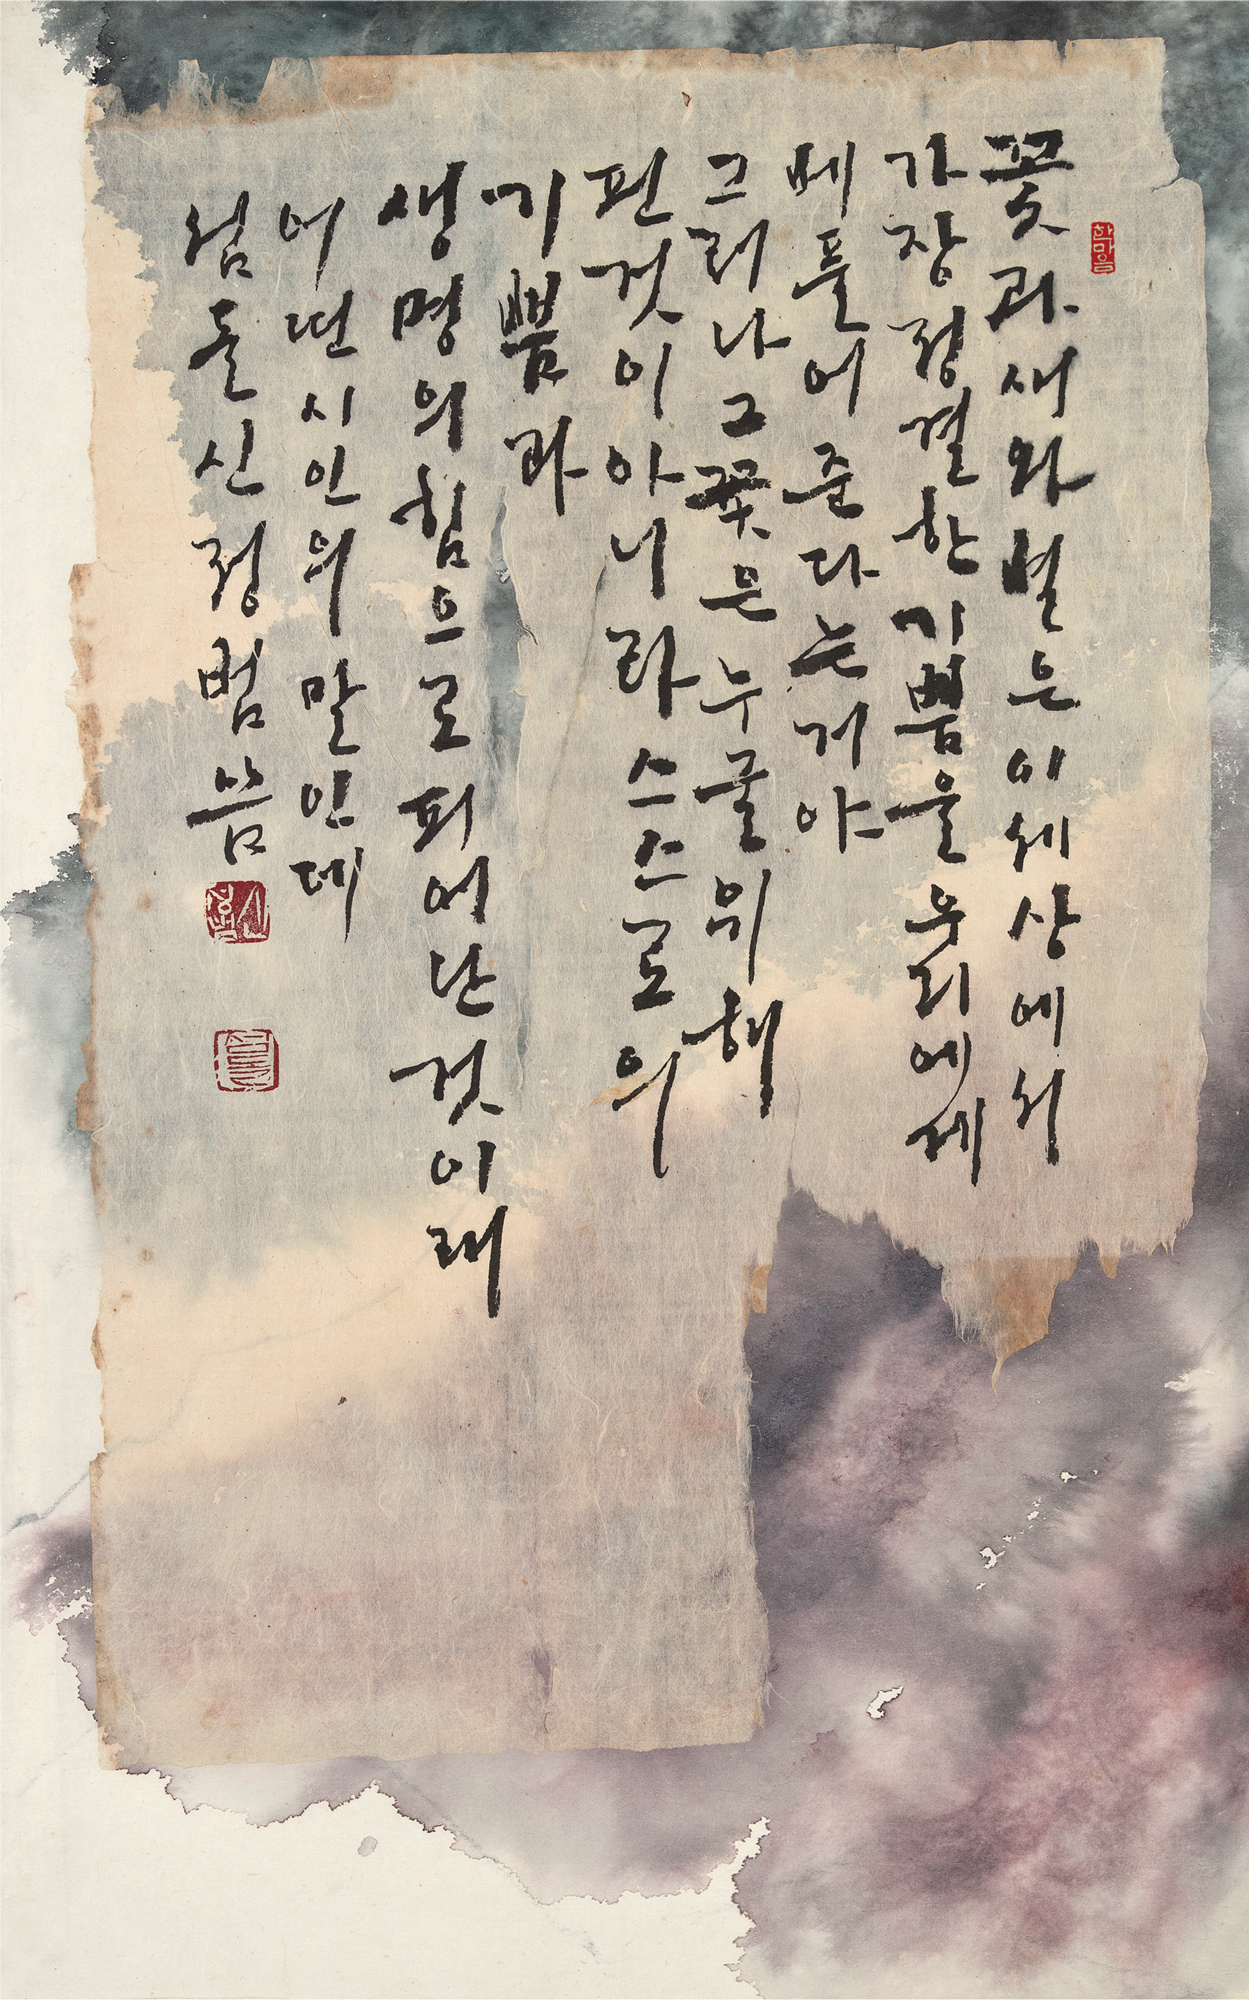 한마음
꽃과새와별은이세상에서
가장정결한기쁨을우리에게
베풀어준다는거야
그러나그꽃은누굴위해
핀것이아니라스스로의
기쁨과
생명의힘으로피어난것이래
어떤시인의말인데
섬돌신정범씀